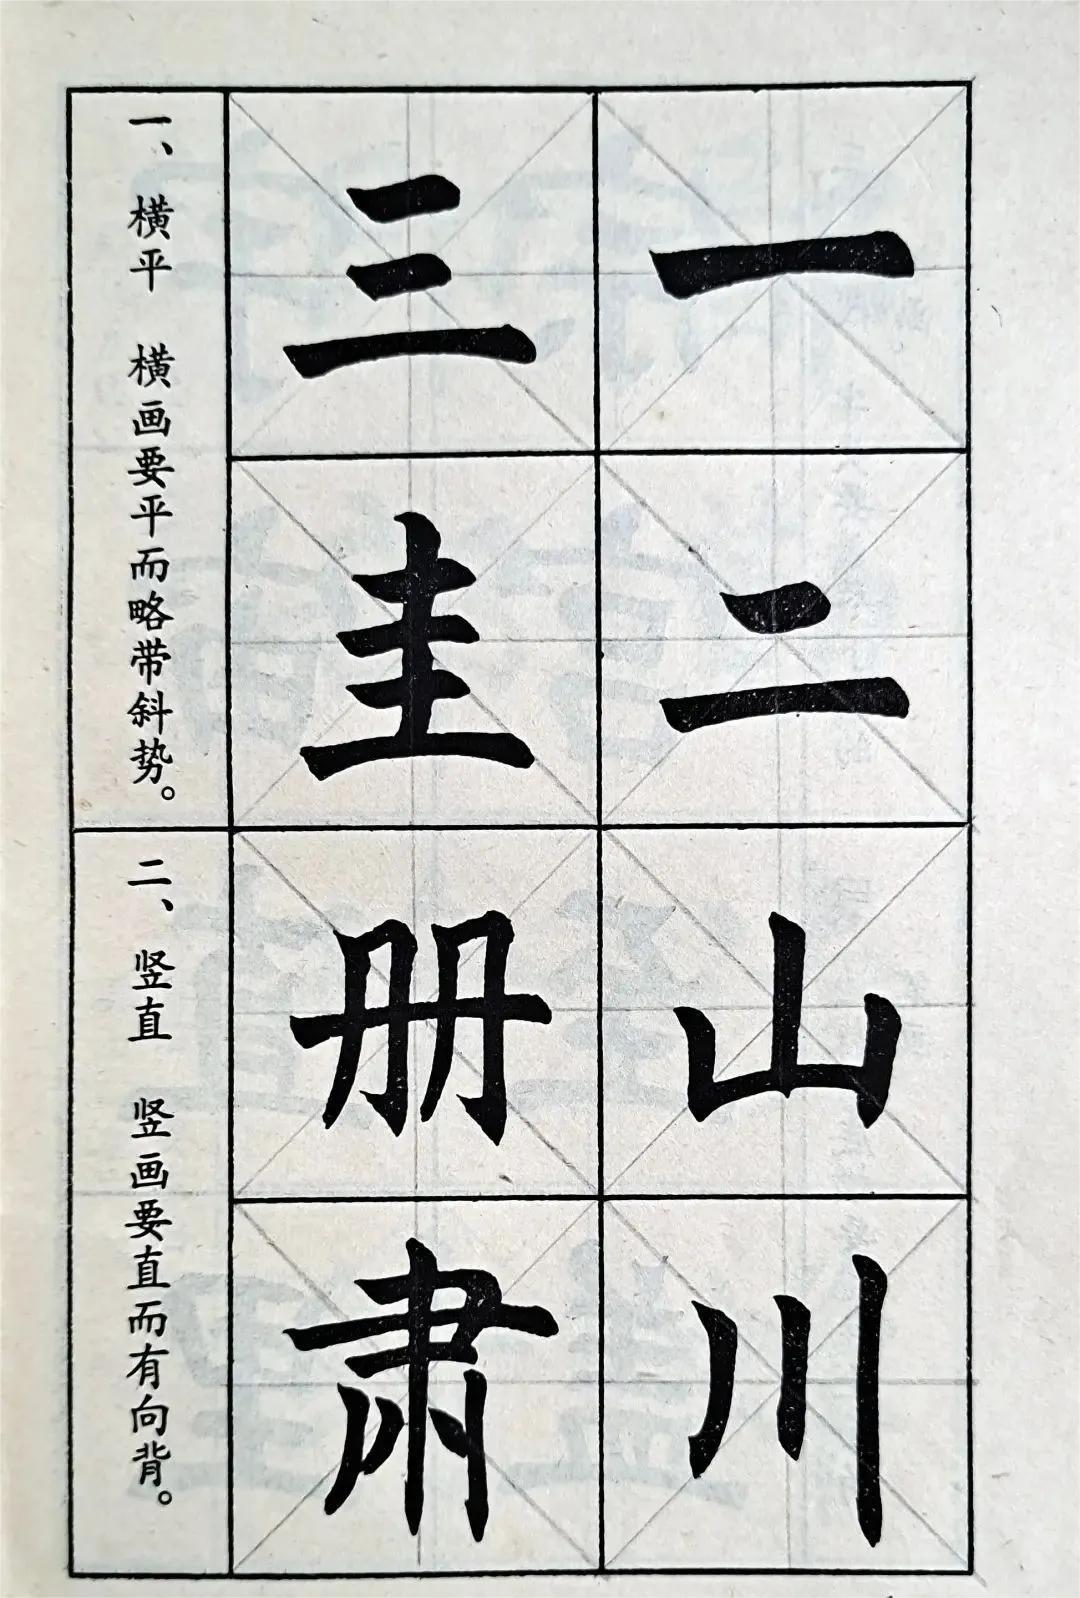 一
二
三
圭
一、横平　横画要平而略带斜势。
山
川
册
肃
二、竖直　竖画要直而有向背。